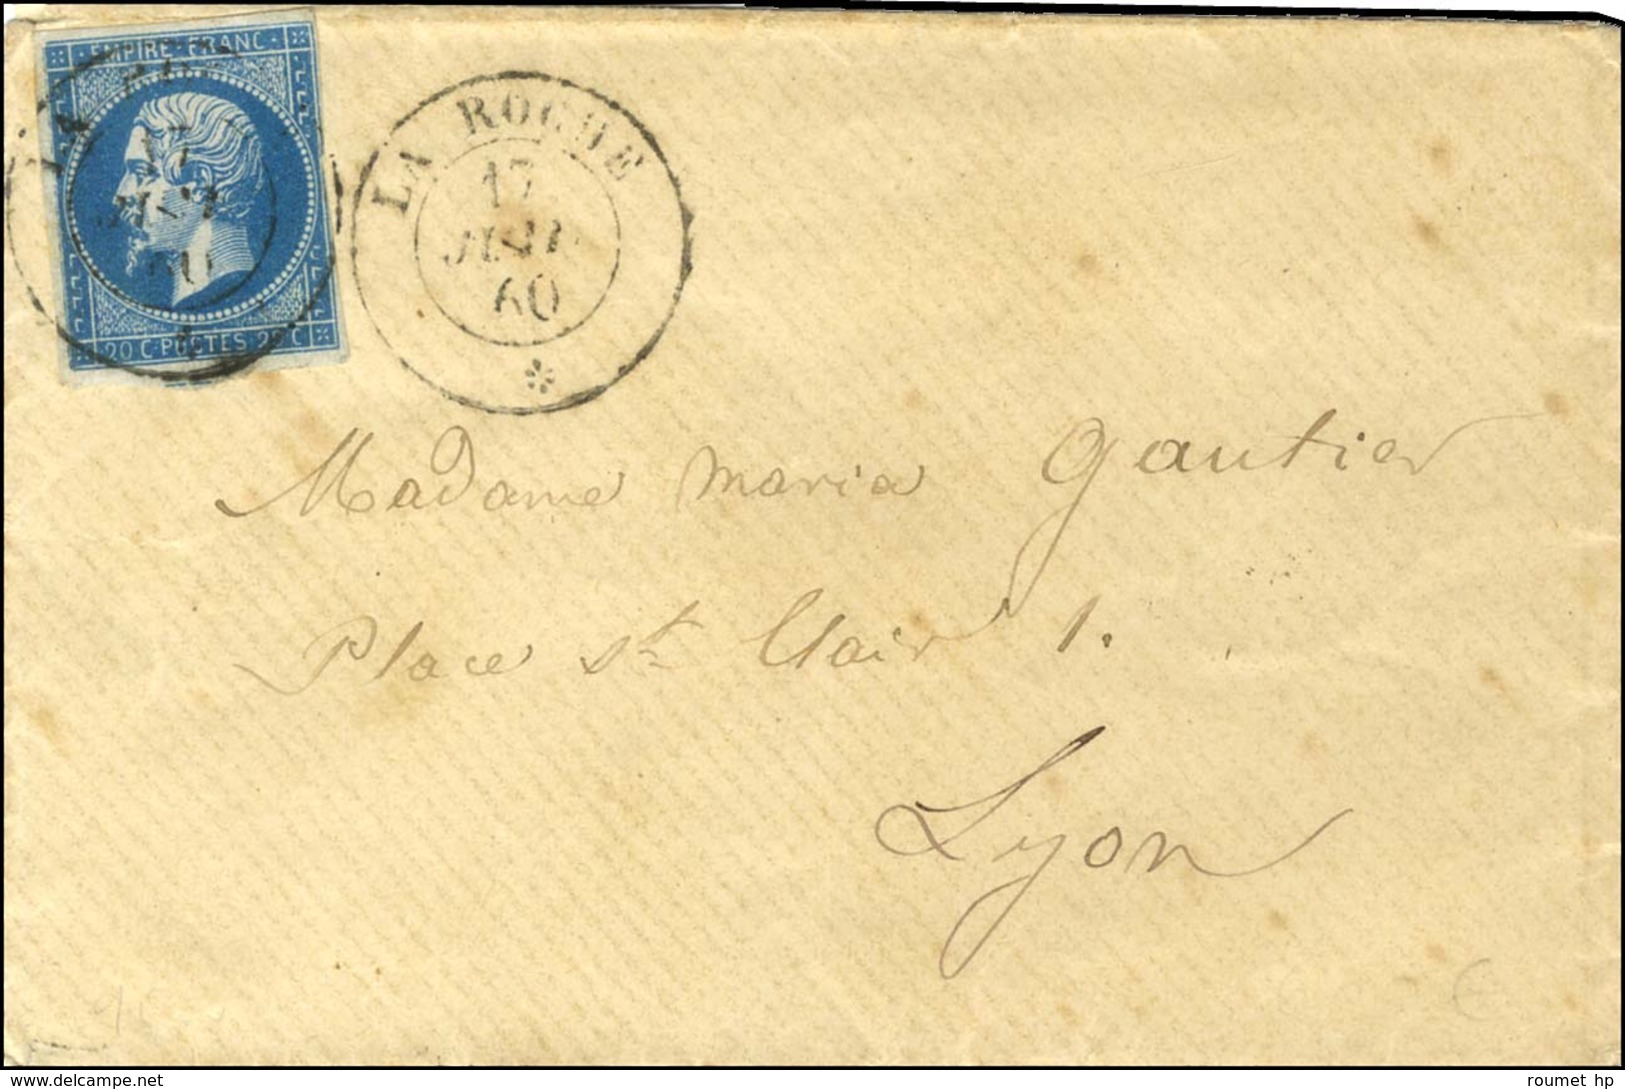 EMPIRE FRANC
20 C. POSTES 20 C
LA
17
60
LA ROCHE
17
60
Madame Maria Gautier
Place St Clair 1.
Lyon
roumet hp